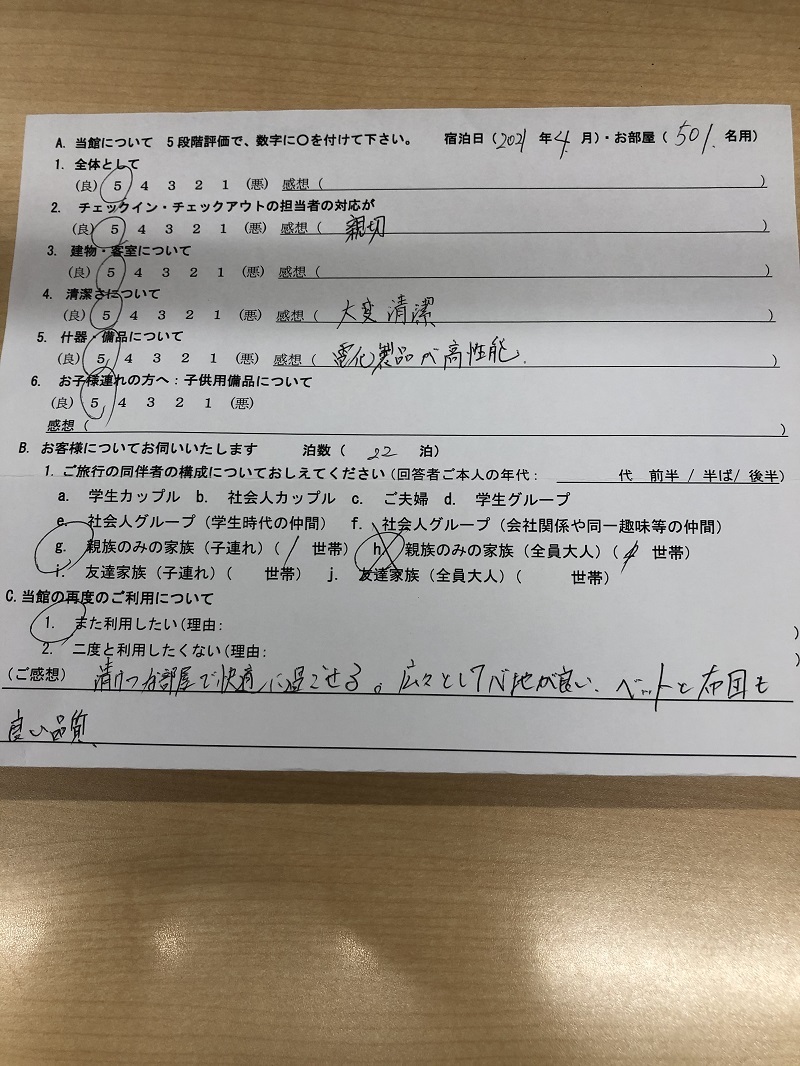 A. 当館について 5段階評価で、数字に〇を付けて下さい。 宿泊日(2021 年4月)・お部屋(501 名用)
1. 全体として
(良) 5 4 3 2 1 (悪) 感想( )
2. チェックイン・チェックアウトの担当者の対応が
(良) 5 4 3 2 1 (悪) 感想( 親切 )
3. 建物・客室について
(良) 5 4 3 2 1 (悪) 感想( )
4. 清潔さについて
(良) 5 4 3 2 1 (悪) 感想( 大変清潔 )
5. 什器・備品について
(良) 5 4 3 2 1 (悪) 感想( 電化製品が高性能. )
6. お子様連れの方へ:子供用備品について
(良) 5 4 3 2 1 (悪)
感想( )
B. お客様についてお伺いいたします 泊数( 22 泊)
1. ご旅行の同伴者の構成についておしえてください(回答者ご本人の年代: 代 前半 / 半ば/ 後半)
a. 学生カップル b. 社会人カップル c. ご夫婦 d. 学生グループ
e. 社会人グループ(学生時代の仲間) f. 社会人グループ(会社関係や同一趣味等の仲間)
g. 親族のみの家族(子連れ)( 1 世帯) h. 親族のみの家族(全員大人)( 世帯)
i. 友達家族(子連れ)( 世帯) j. 友達家族(全員大人)( 世帯)
C. 当館の再度のご利用について
1. また利用したい(理由: )
2. 二度と利用したくない(理由: )
(ご感想) 部屋で快適に過ごせる。広々として心地が良い、ベットと布団も
良い品質、